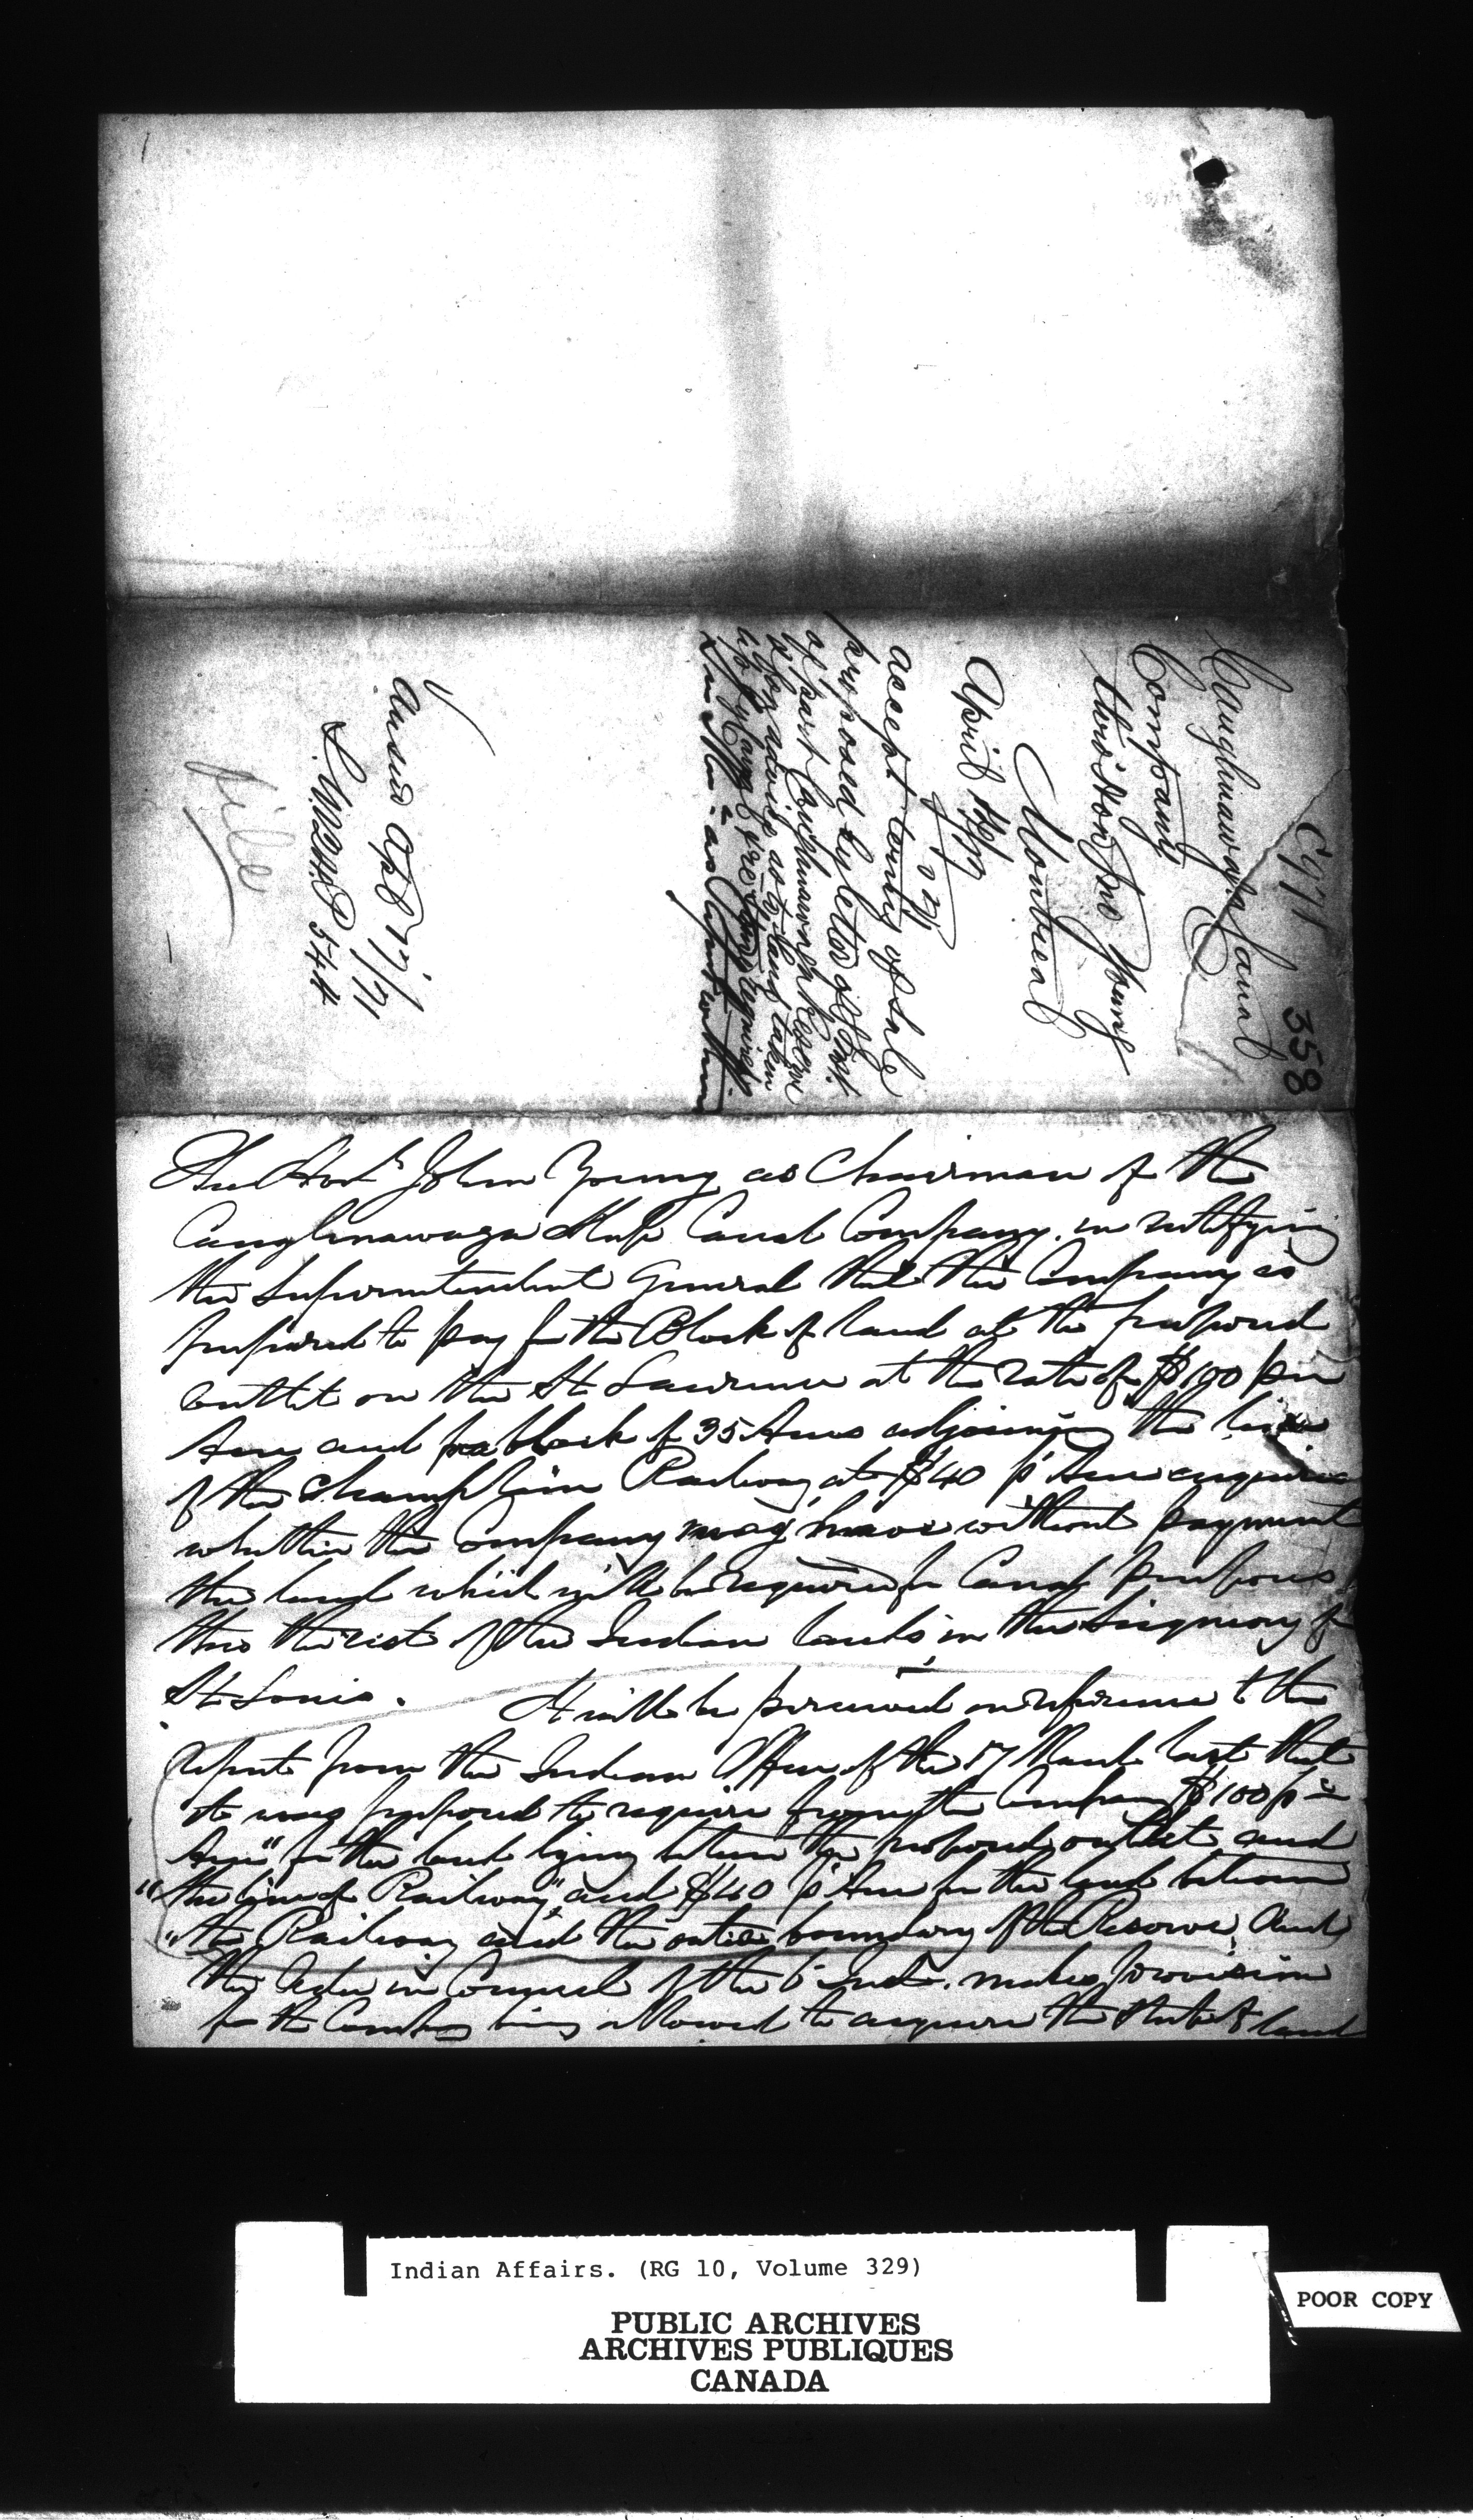 C 971
358
Caughnawaga Canal
Company
Montreal
April
accept terms of sale
proposed by letter
of part Caughnawaga Reserve
Answd Apl 17/71
544
file
The Honl John Young as Chairman of the
Caughnawaga Ship Canal Company, in notifying
the Superintendent General that the Company is
prepared to pay for the Block of land at the proposed
outlet on the St Lawrence at the rate of $100 per
Acre and for a block of 35 Acres adjoining the line
of the Champlain Railway at $40 p Acre enquires
whether the Company may have without payment
the land which will be required for Canal purposes
thro' the rest of the Indian lands in the Seigniory of
St Louis. It will be perceived on reference to the
Report from the Indian Office of the 17 March last that
it was proposed to require from the Company $100 pr
Acre" for the land lying between the proposed outlet and
"the line of Railway," and $40 p Acre for the land between
"the Railway and the outer boundary of the Reserve, And
the Order in Council of the 6 makes provision
for the Company being allowed to acquire the land
Indian Affairs. (RG 10, Volume 329)
PUBLIC ARCHIVES
ARCHIVES PUBLIQUES
CANADA
POOR COPY